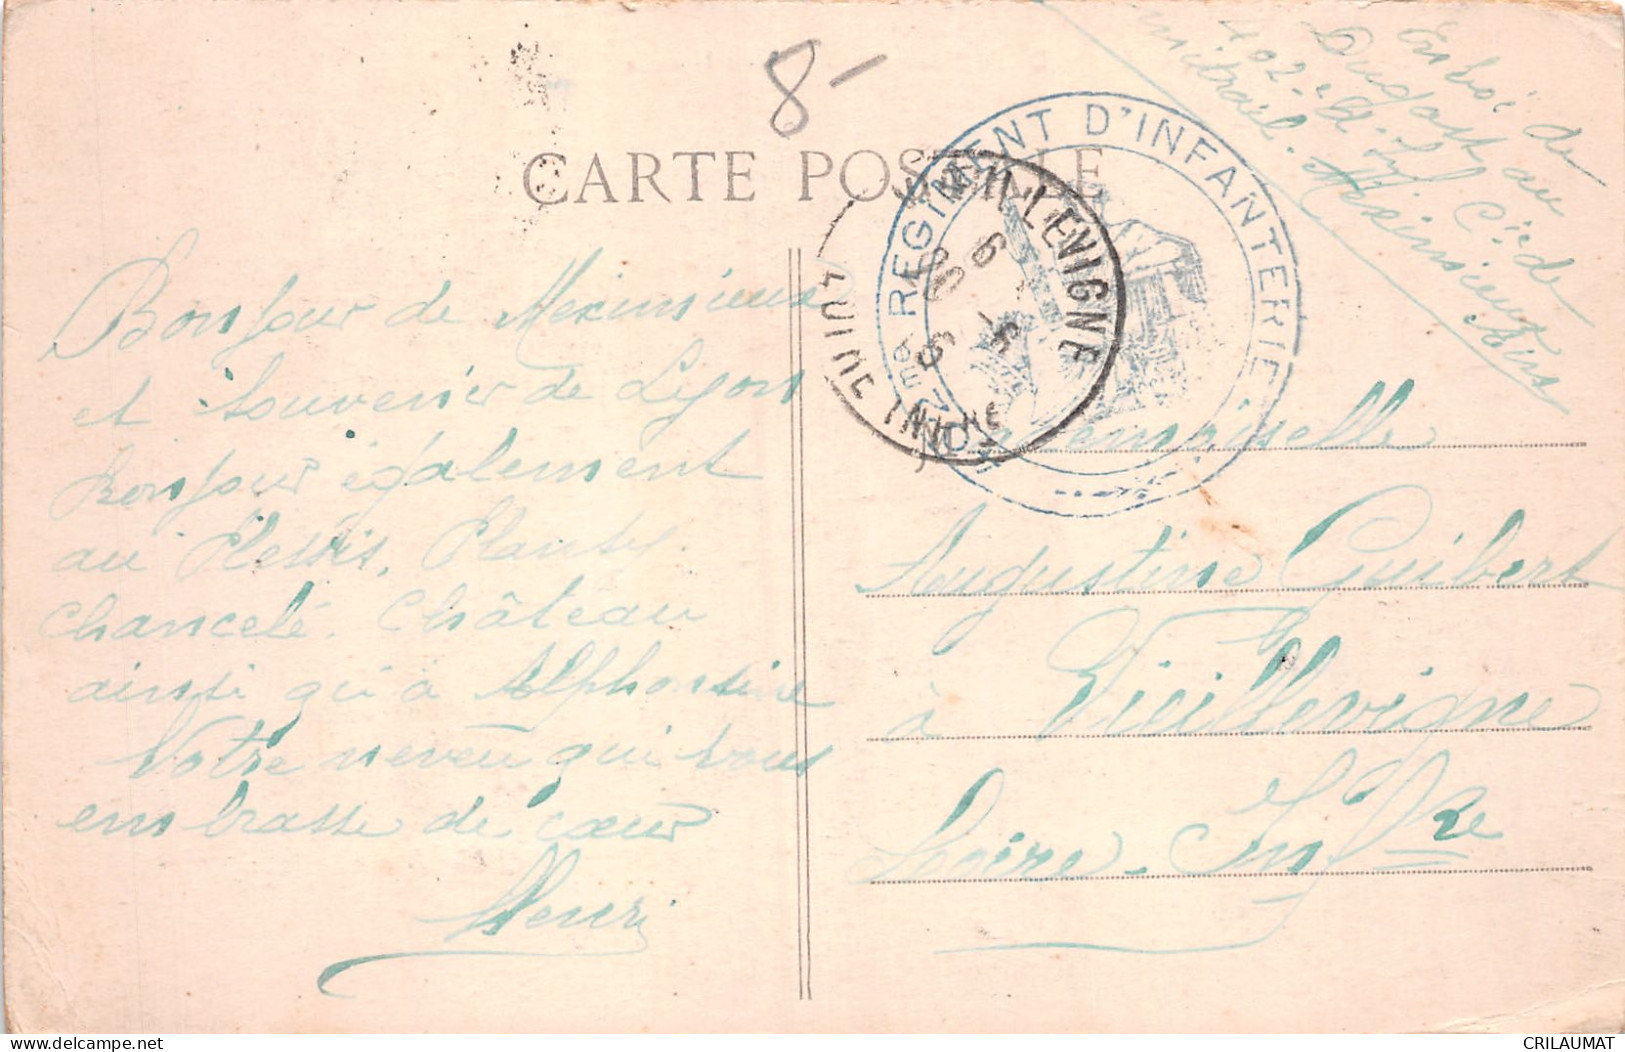 8-
CARTE POSTALE
Envoi de
Dugast au
402e de L. Cie de
mitrail. Meximieux
Ain
REGIMENT D'INFANTERIE
VIEILLEVIGNE
LOIRE INFRE
Bonjour de Meximieux
et Souvenir de Lyon
Bonjour également
au Plessis,
chancelé. Château
ainsi qu'à Alphonsine
Votre neveu qui vous
embrasse de cœur
Henri
Mademoiselle
Augustine Guibert
à Vieillevigne
Loire-Infre
CRILAUMAT